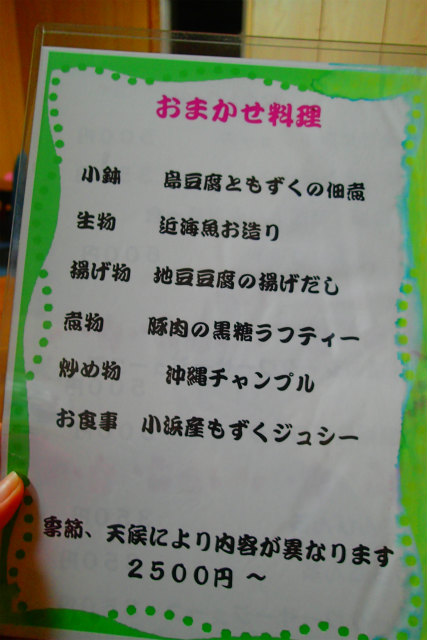 おまかせ料理
小鉢 島豆腐ともずくの佃煮
生物 近海魚お造り
揚げ物 地豆豆腐の揚げだし
煮物 豚肉の黒糖ラフティー
炒め物 沖縄チャンプル
お食事 小浜産もずくジュシー
季節、天候により内容が異なります
2500円 ～